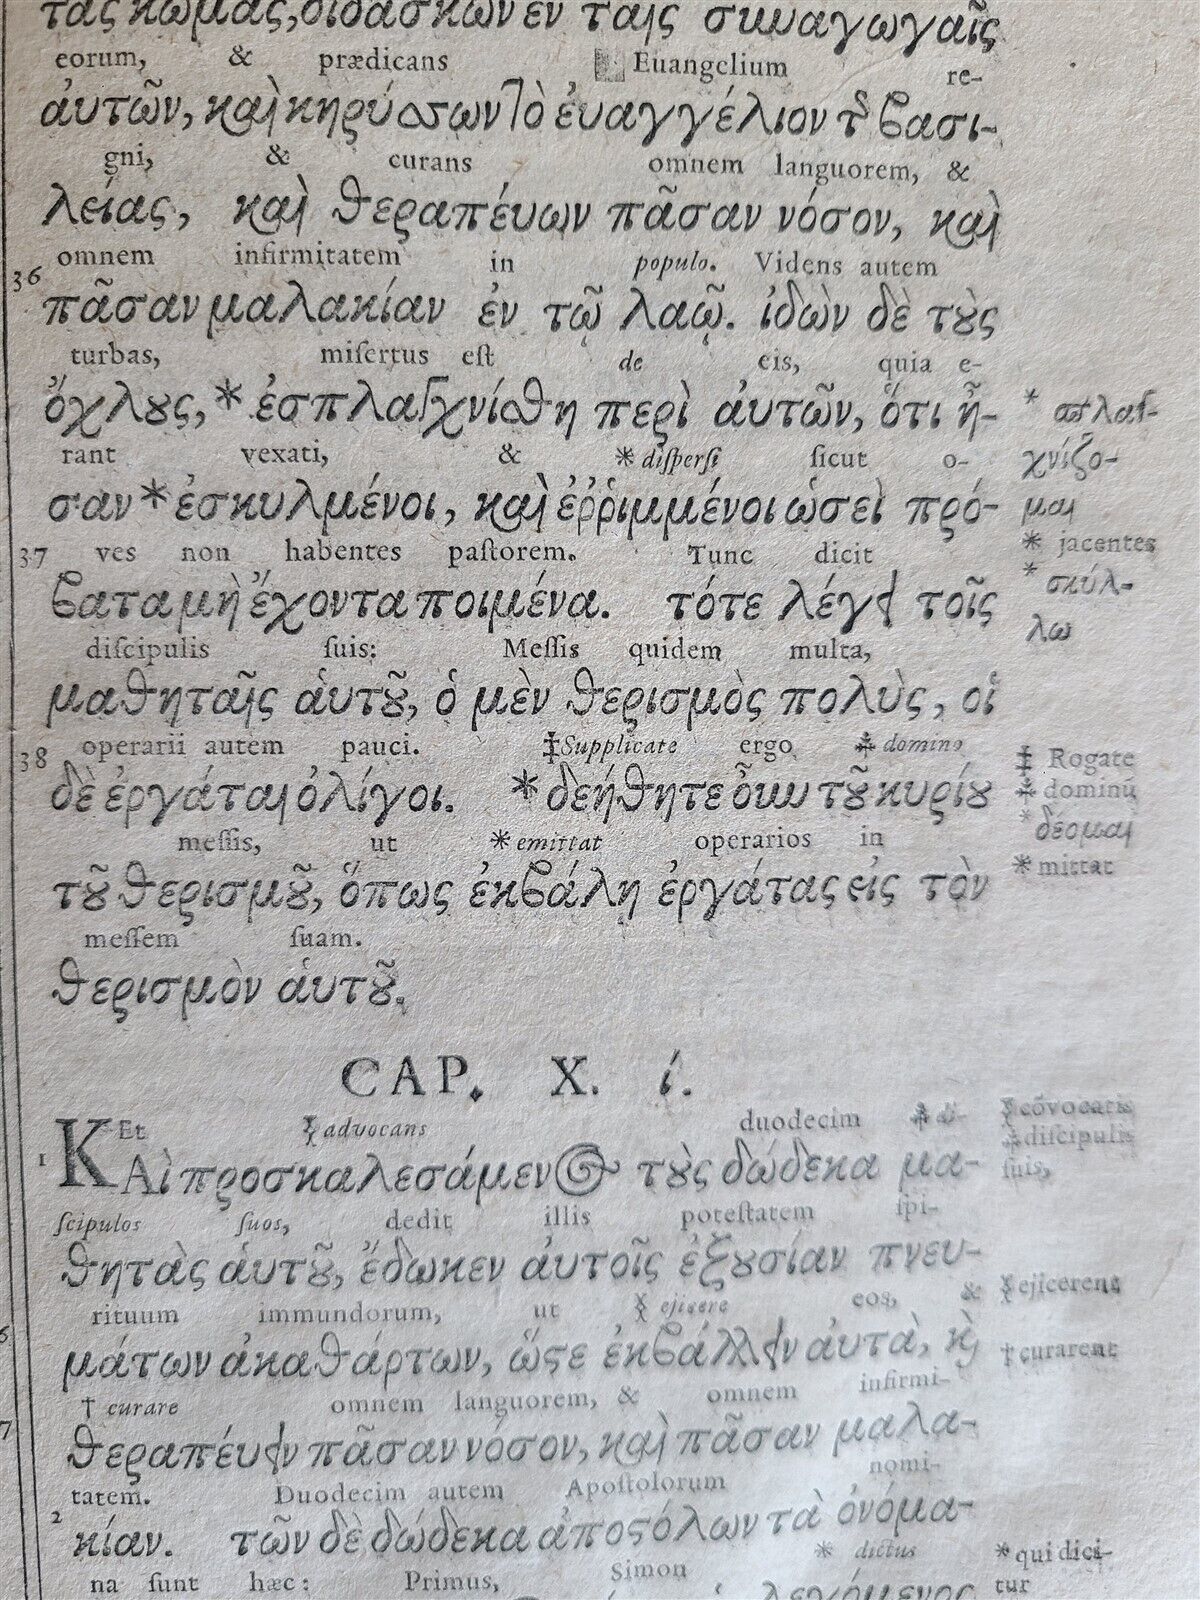 τας κώμας, διδάσκων ἐν ταῖς συναγωγαῖς
eorum, & prædicans Euangelium re-
ἀυτῶν, καὶ κηρύσσων τὸ ἐυαγγέλιον τῆς βασι-
gni, & curans omnem languorem, &
λείας, καὶ θεραπέυων πᾶσαν νόσον, καὶ
omnem infirmitatem in populo. Videns autem
36 πᾶσαν μαλακίαν ἐν τῷ λαῷ. ἰδὼν δὲ τοὺς
turbas, miſertus eſt de eis, quia e-
ὄχλους, * ἐσπλαγχνίσθη περὶ ἀυτῶν, ὅτι ἦ- * σπλαγ-
rant vexati, & * diſperſi ſicut o- χνίζο-
σαν * ἐσκυλμένοι, καὶ ἐῤῥιμμένοι ὡσεὶ πρό- μαι
37 ves non habentes paſtorem. Tunc dicit * jacentes
βατα μὴ ἔχοντα ποιμένα. τότε λέγει τοῖς * σκύλ-
diſcipulis ſuis: Meſſis quidem multa, λω
μαθηταῖς ἁυτοῦ, ὁ μὲν θερισμὸς πολὺς, οἱ
38 operarii autem pauci. ‡ Supplicate ergo ⸙ domino ‡ Rogate
δὲ ἐργάται ὀλίγοι. * δεήθητε οὖν τοῦ κυρίου ⸙ dominū
* δέομαι
meſſis, ut * emittat operarios in * mittat
τοῦ θερισμοῦ, ὅπως ἐκβάλῃ ἐργάτας εἰς τὸν
meſſem ſuam.
θερισμὸν ἁυτοῦ.
CAP. X. ί.
Et advocans duodecim di- cōvocatis
1 ΚΑὶ προσκαλεσάμενος τοὺς δώδεκα μα- diſcipulis
ſcipulos ſuos, dedit illis poteſtatem ſpi- ſuis,
θητὰς ἁυτοῦ, ἔδωκεν ἀυτοῖς ἐξουσίαν πνευ-
rituum immundorum, ut ejicere eos, & ejicerent
μάτων ἀκαθάρτων, ὥστε ἐκβάλλειν ἀυτὰ, καὶ † curarent
† curare omnem languorem, & omnem infirmi-
θεραπέυειν πᾶσαν νόσον, καὶ πᾶσαν μαλα-
tatem. Duodecim autem Apoſtolorum nomi-
2 κίαν. τῶν δὲ δώδεκα ἀποστόλων τὰ ὀνόμα-
na ſunt hæc: Primus, Simon * dictus * qui dici-
λεγόμενος tur